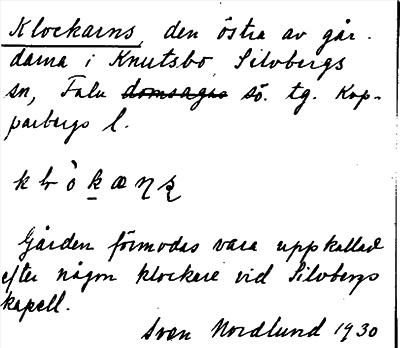 Klockarns, den östra av går-
darna i Knutsbo, Silvbergs
sn, Falu domsagas sö. tg. Kop-
parbergs l.
Gården förmodas vara uppkallad
efter någon klockare vid Silvbergs
kapell.
Sven Nordlund 1930